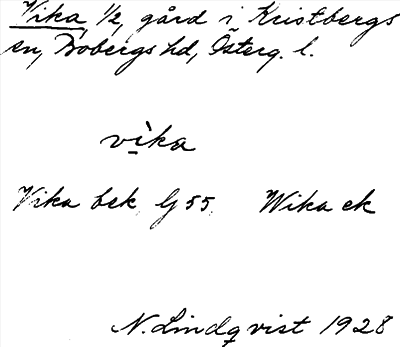 Vika, 1/2, gård i Kristbergs
sn, Bobergs hd, Österg. l.
vìka
Vika bek. Gj 55. Wika ek
N. Lindqvist 1928